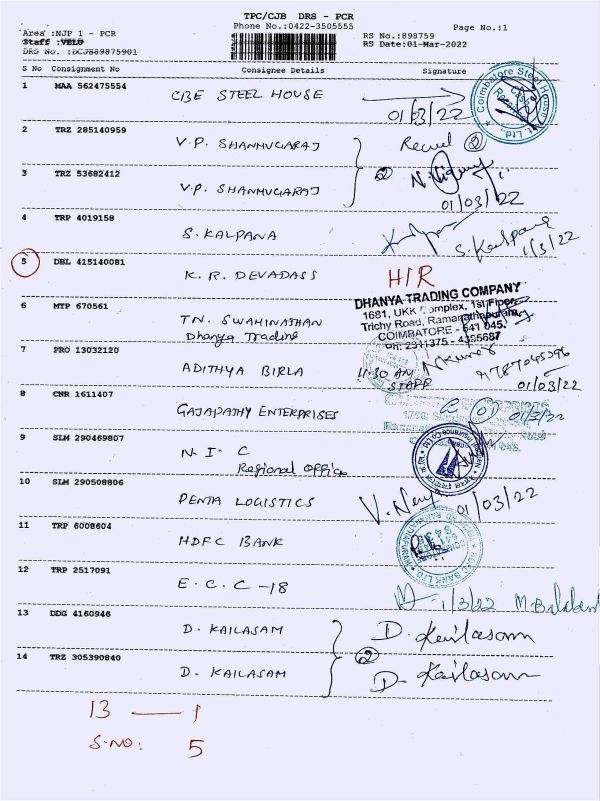 TPC/CJB DRS - PCR
Area :NJP 1 - PCR
Phone No.:0422-3505555
Page No.:1
Staff :VELO
RS No.:898759
DRS No. :DCJB89875901
RS Date:01-Mar-2022
S No Consignment No Consignee Details Signature
1 MAA 562475554 CBE STEEL HOUSE 01/03/22
Coimbatore Steel House Pvt. Ltd.,
2 TRZ 285140959 V.P. SHANMUGARAJ
3 TRZ 53682412 V.P. SHANMUGARAJ 2 01/03/22
4 TRP 4019158 S. KALPANA S. Kalpana 1/3/22
5 DBL 415140081 K. R. DEVADASS H/R
DHANYA TRADING COMPANY
1681, UKK Complex, 1st Floor,
Trichy Road, Ramanathapuram,
COIMBATORE - 641 045.
Ph: 2311375 - 4355687
6 MTP 670561 TN. SWAMINATHAN
Dhanya Trading
7 PRO 13032120 ADITHYA BIRLA 11:30 AM 01/03/22
STAFF
8 CNR 1611407 GAJAPATHY ENTERPRISES 01/3/22
9 SLM 290469807 N. I. C
Regional Office
10 SLM 290508806 PENTA LOGISTICS 01/03/22
11 TRP 6008604 HDFC BANK
12 TRP 2517091 E. C. C -18 1/3/22
13 DDG 4160946 D. KAILASAM D. Kailasam
14 TRZ 305390840 D. KAILASAM 2 D. Kailasam
13 — 1
S.NO: 5